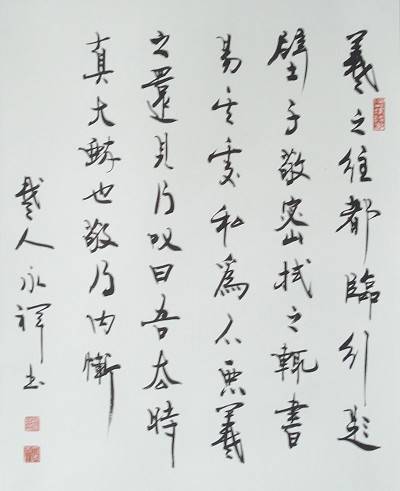 羲之往都臨行題
壁子敬密拭之輒書
易其處私爲不惡羲
之還見乃叹曰吾去時
真大醉也敬乃内慚
人永书